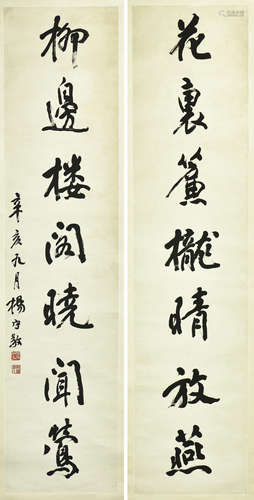 花裏簾櫳晴放燕
柳邊楼阁曉聞鶯
辛亥九月楊守敬